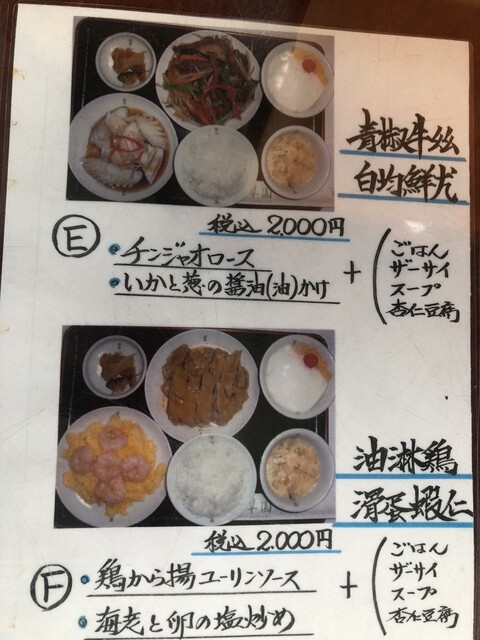 青椒牛絲
白灼鮮尤
税込 2,000円
E
・チンジャオロース
・いかと葱の醤油(油)かけ
+
ごはん
ザーサイ
スープ
杏仁豆腐
油淋鶏
滑蛋蝦仁
税込 2,000円
F
・鶏から揚ユーリンソース
・海老と卵の塩炒め
+
ごはん
ザーサイ
スープ
杏仁豆腐